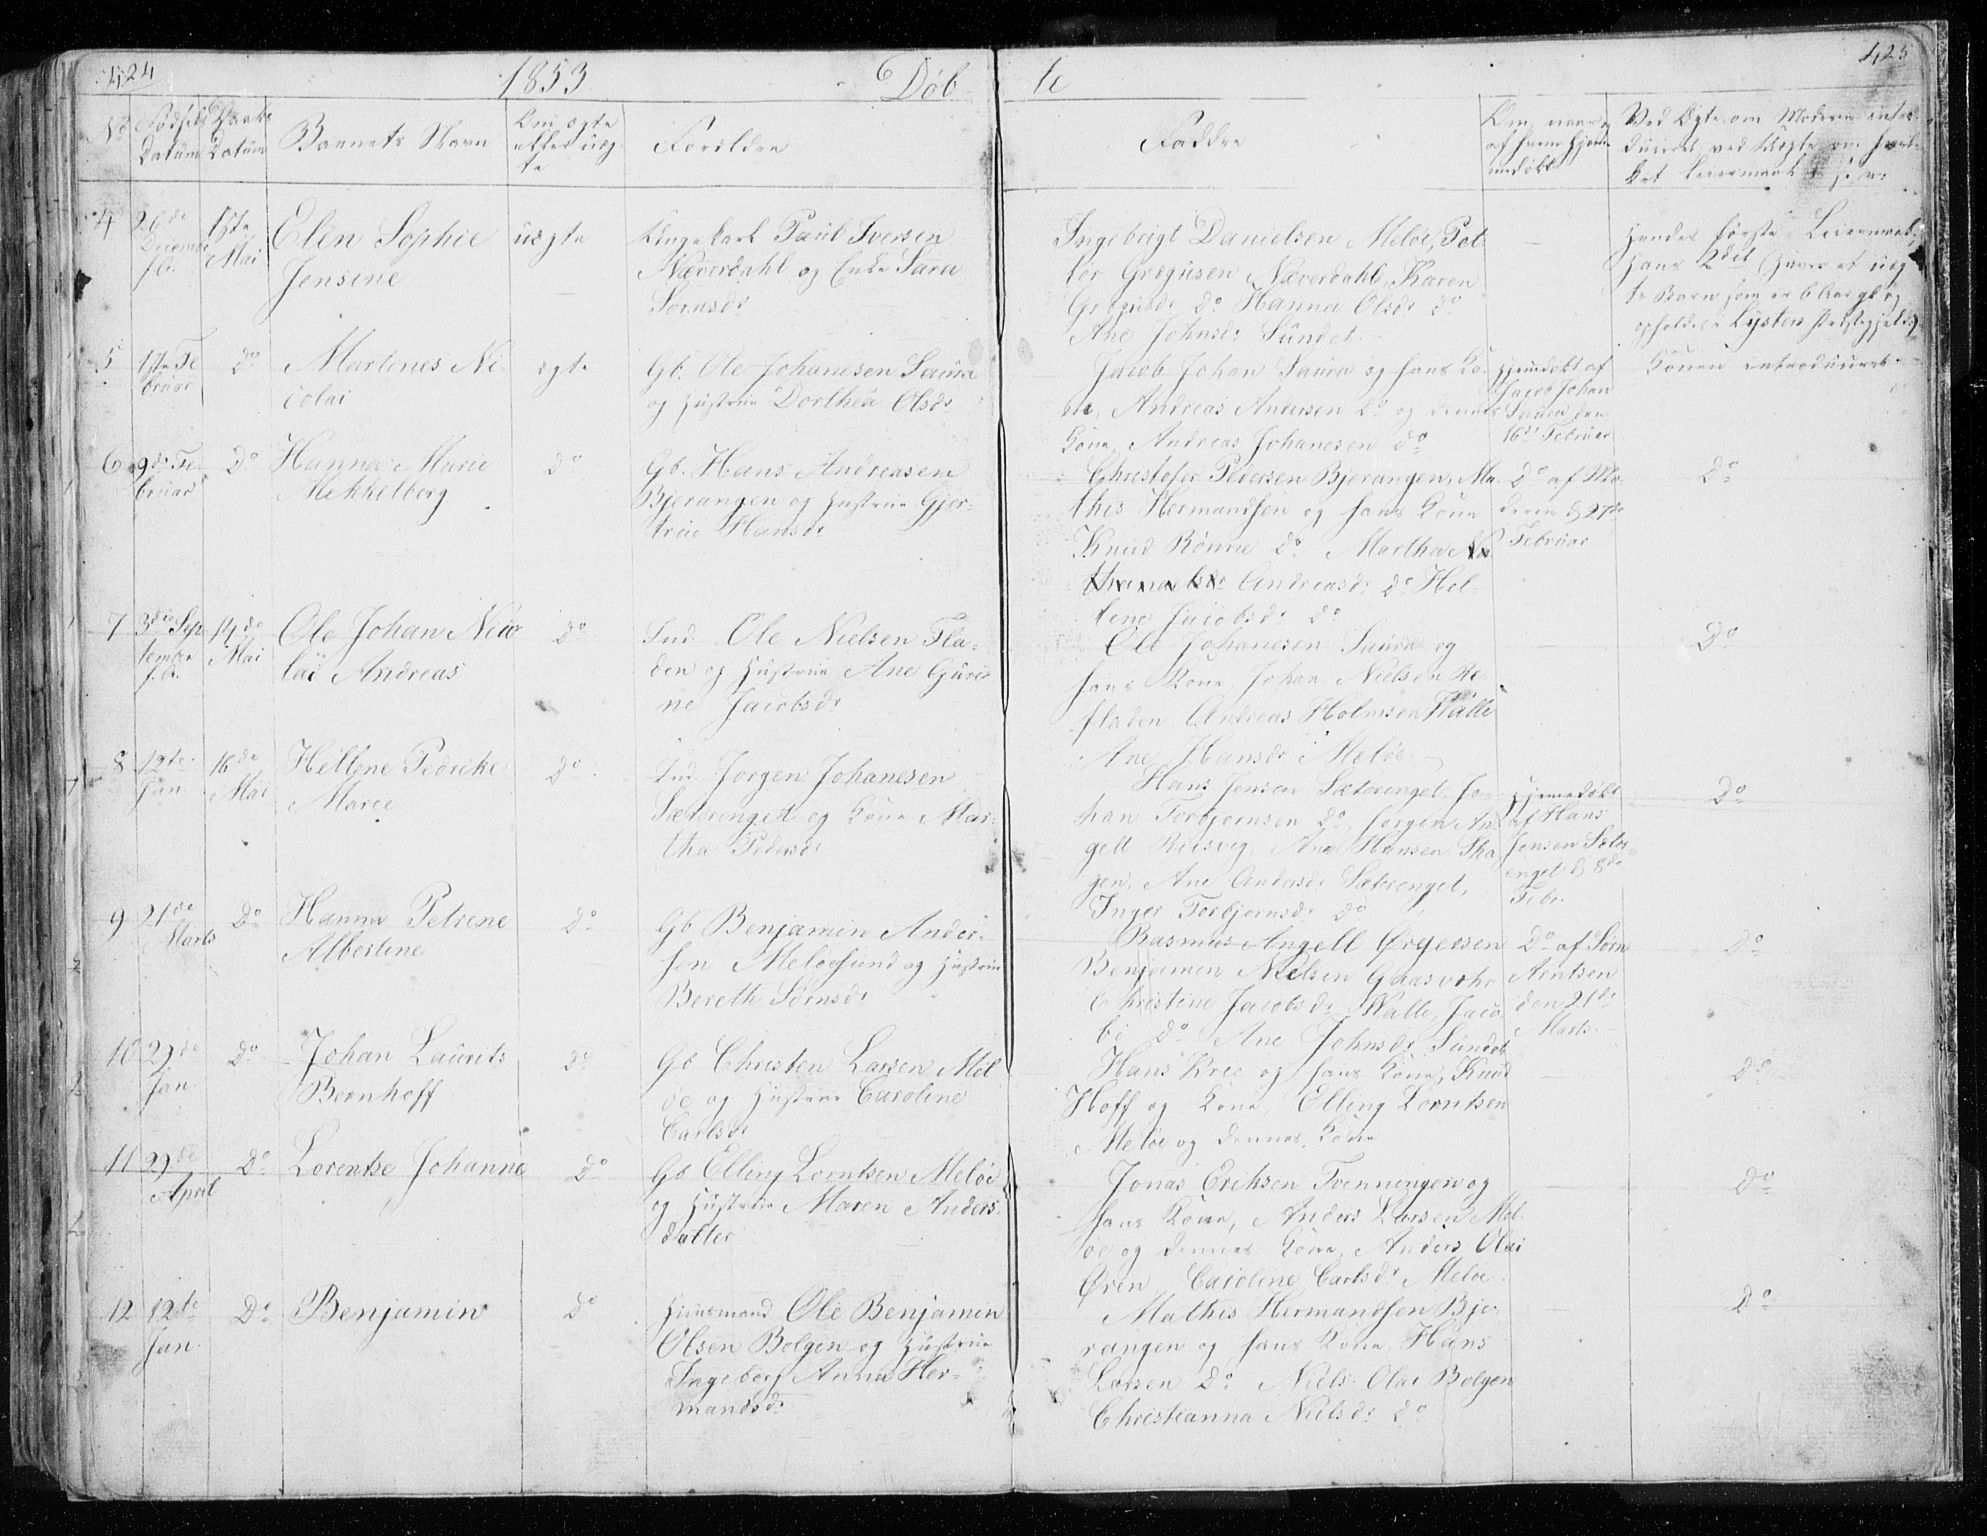 424
1853
Døb
te
425
No
Fødsels
Datum
Daabs
Datum
Barnets Navn
Om ægte
eller uæg-
te
Forældre
Faddre
Om naar
af hvem hjem-
medøbt
Ved Ægte om Moderen intro-
duceret, ved Uægte om hvil-
ket Leiermaal
4
26de
Decemb
f. A.
15te
Mai
Elen Sophie
Jensine
uægte
Ungekarl Paul Iversen
Næverdahl og Enke Sara
Sørnsdr
Ingebrigt Danielsen Meløe, Pet
ter Gregusen Næverdahl, Karen
Gregusdr Do Hanna Olsdr do
Ane Johnsdr Sundet.
Hendes første Leiermaal,
Hans 2det (haver et uæg
te Barn som er 6 Aar gl og
opholder i Lysters Præstegjeld)
5
17te Fe
bruar
Do
Martines Ni-
colai
ægte
Gb. Ole Johanesen Saura
og Hustrue Dorthea Olsdr
Jacob Johan Saura og hans Ko-
ne, Andreas Andersen Do og dennes
Kone, Andreas Johanesen do
Hjemdøbt af
Jacob Johan
Saura den
16de Februar
Konen introduceret
6
9de Fe-
bruar
Do
Hanna Marie
Mekkelborg
Do
Gb. Hans Andreasen
Bjerangen og Hustrue Gjer-
true Hansdr
Christofer Pedersen Bjerangen, Ma-
this Hermandsen og hans Kone
Knud Rønne do Martha Na
thanaelsdr Andreasdr do Hel-
lene Jacobsdr do
Do af Mo-
deren d 27de
Februar
Do
7
3die Sep
tember
f. A.
14de
Mai
Ole Johan Nico
lai Andreas
Do
Ind. Ole Nielsen Fla-
den og Hustrue Ane Guri-
ne Jacobsdr
Ole Johanesen Saura og
hans Kone, Johan Nielsen Re-
fladen, Andreas Holmsen Walle
Ane Hansdr Meløe
Do
8
12te
Jan
16de
Mai
Hellene Pedrike
Marie
Do
Ind. Jørgen Johanesen
Sæterenget og Kone Mar-
tha Pedersdr
Hans Jensen Sæterenget, Jo-
han Torbjørnsen Do, Jørgen An-
gell Reisvig, Ane Hansen Ska
gen, Ane Andersdr Sæterenget,
Inger Torbjørnsdr do
Hjemmedøbt
af Hans
Jensen Sæter
enget d 8de
Febr.
Do
9
21de
Marts
Do
Hanna Petrene
Albertine
Do
Gb Benjamin Ander-
sen Meløesund og Hustrue
Bereth Sørnsdr
Rasmus Angell Ørgensen
Benjamin Nielsen Gaasvær
Christine Jacobsdr Walle, Jaco
bi do Ane Johnsdr Sundet
Do af Sørn
Arntsen
den 21de
Marts.
Do
10
29de
Jan
Do
Johan Laurits
Bernhoff
Do
Gb Christen Larsen Mel
øe og Hustrue Caroline
Carlsdr
Hans Kree og hans Kone, Knud
Hoff og Kone, Elling Lorntsen
Meløe og dennes Kone
Do
11
29de
April
Do
Lorentse Johanna
Do
Gb Elling Lorntsen Meløe
og Hustrue Maren Anders-
datter
Jonas Eriksen Tvenningen og
hans Kone, Anders Larsen Mel-
øe og dennes Kone, Anders Olai
Øren Caroline Carlsdr Meløe
Do
12
12te
Jan
Do
Benjamin
Do
Huusmand Ole Benjamin
Olsen Bolgen og Hustrue
Ingeborg Anna Her-
mandsdr
Mathis Hermandsen Bje-
rangen og hans Kone, Hans
Larsen Do Niels Olai Bolgen
Christianna Nielsdr do
Do